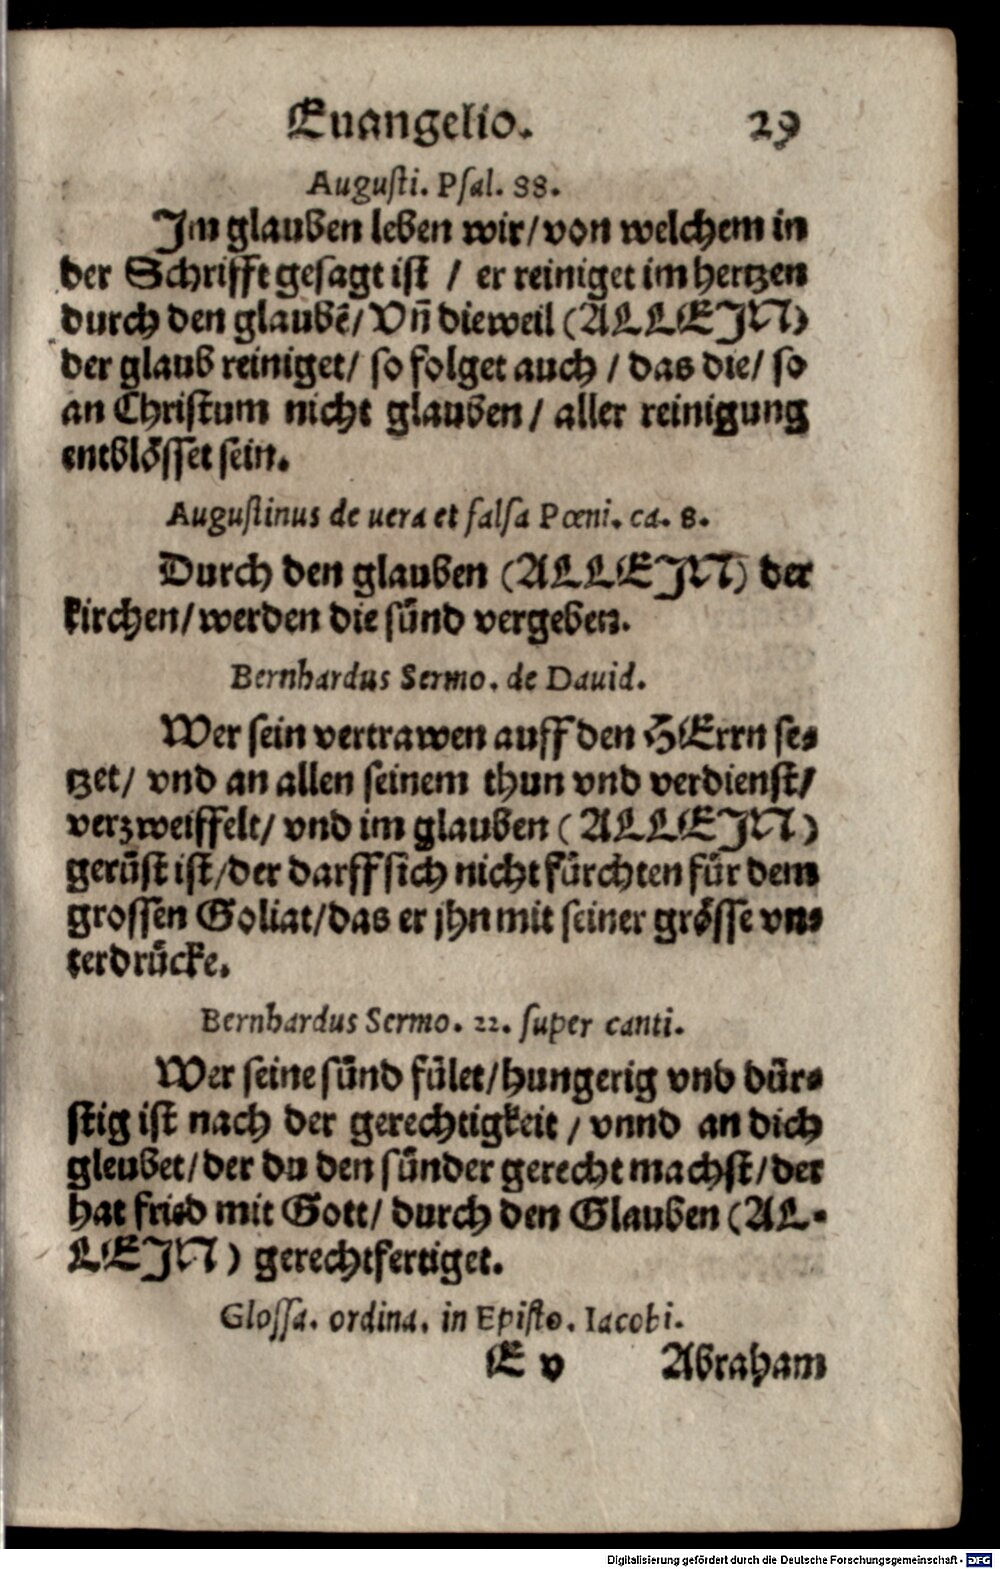 Euangelio. 29
Augusti. Psal. 88.
Im glauben leben wir/ von welchem in
der Schrifft gesagt ist / er reiniget im hertzen
durch den glaubẽ/ Vñ dieweil (ALLEIN)
der glaub reiniget/ so folget auch / das die/ so
an Christum nicht glauben/ aller reinigung
entblösset sein.
Augustinus de uera et falsa Pœni. ca. 8.
Durch den glauben (ALLEIN) der
kirchen/ werden die sünd vergeben.
Bernhardus Sermo. de Dauid.
Wer sein vertrawen auff den HErrn se-
tzet/ vnd an allen seinem thun vnd verdienst/
verzweiffelt/ vnd im glauben (ALLEIN)
gerüst ist/ der darff sich nicht fürchten für dem
grossen Goliat/ das er jhn mit seiner grösse vn-
terdrücke.
Bernhardus Sermo. 22. super canti.
Wer seine sünd fület/ hungerig vnd dür-
stig ist nach der gerechtigkeit / vnnd an dich
gleubet/ der du den sünder gerecht machst/ der
hat fried mit Gott/ durch den Glauben (AL-
LEIN) gerechtfertiget.
Glossa. ordina. in Episto. Iacobi.
E v Abraham
Digitalisierung gefördert durch die Deutsche Forschungsgemeinschaft - DFG